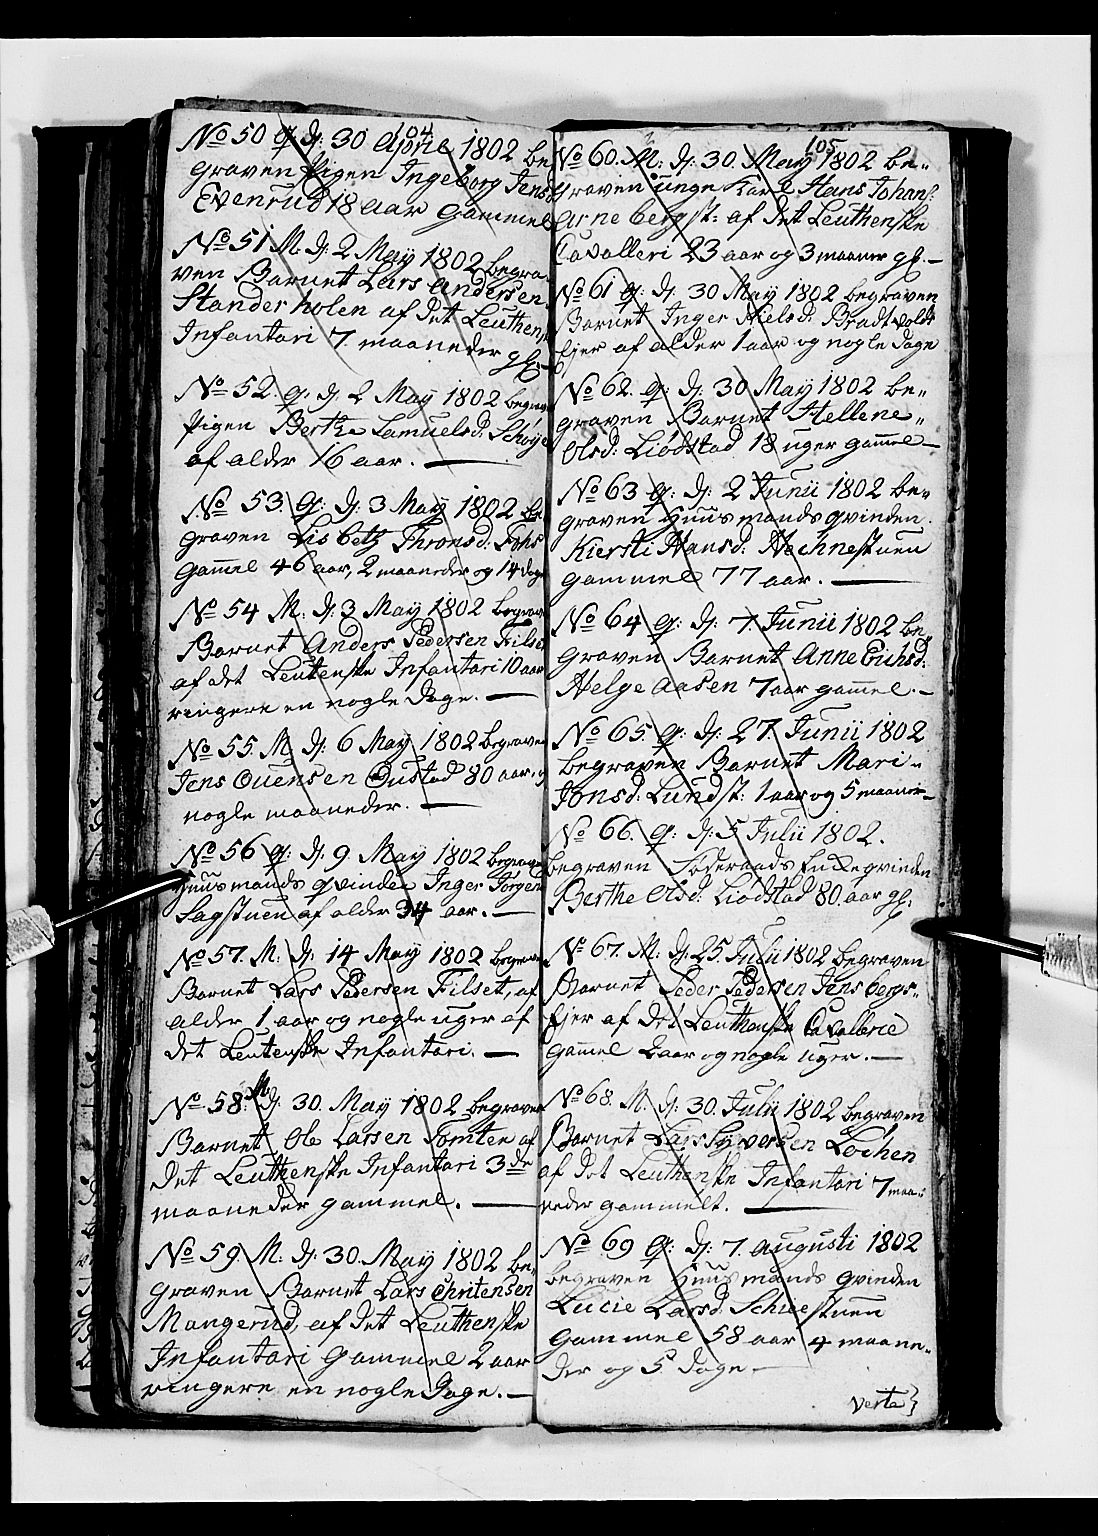 104
No 50 q. d: 30 April 1802 be
graven Pigen Ingeborg Jensd
Evenrud 18 aar gammel
No 51 M. d: 2 May 1802 begra-
ven Barnet Lars Andersen
Standerholen af det Leuthensk
Infantari 7 maaneder gl. —
No 52. q. d. 2 May 1802 begrav
Pigen Berthe Samuelsd: Schøye
af alder 16 aar. —
No 53 q: d: 3 May 1802 be
graven Lisbeth Thronsd: Fohs
Gammel 46 aar, 2 maaneder og 14 dage
No 54 M. d: 3 May 1802 begrav
Barnet Anders Pedersen Filset
af det Leutenske Infantari 10 aar
ringere en nogle Dage. —
No 55 M d: 6 May 1802 begraven
Jens Ouensen Oustad 80 aar og
nogle maaneder. —
No 56 q: d: 9. May 1802 begraven
Huusmands qvinde Inger Jørgen
Sagstuen af alder 34 aar. —
No 57. M: d: 14 May 1802 begraven
Barnet Lars Pedersen Filset, af
alder 1 aar og nogle uger af
det Leutenske Infantari. —
No 58. M d: 30. May 1802 begraven
Barnet Ole Larsen Tomten af
det Leuthenske Infantari 3de
maaneder gammel. —
No 59. M: d: 30. May 1802 be-
graven Barnet Lars Christensen
Mangerud, af det Leuthenske
Infantari Gammel 2 aar
ringere en nogle Dage. —
105
No 60. M: d: 30. May 1802 be-
graven unge Karl Hans Johans:
Arnebergst: af det Leuthenske
Cavalleri 23 aar og 3 maaner gl. —
No 61 q: d: 30 May 1802 begraven
Barnet Inger Nielsd: Bradtvoldt
Ejer af alder 1 aar og nogle dage
No 62. q: d: 30 May 1802 be-
graven Barnet Hellene
Olsd: Liødstad 18 uger gammel —
No 63 q: d: 2 Junii 1802 be-
graven Huusmands qvinden
Kiersti Hansd: Nechnestuen
gammel 77 aar. —
No 64 q: d: 7. Junii 1802 be
graven Barnet Anne Erichsd:
Helgeaasen 7 aar gammel. —
No 65 q: d: 27 Junii 1802
begraven Barnet Mari
Jonsd: Lundst: 1 aar og 5 maaner —
No 66. q: d: 5 Julii 1802.
begraven Føderaads Enkeqvinden
Berthe Olsd: Liødstad 80 aar gl.
No 67. M. d: 25. Julii 1802 begraven
Barnet Peder Pedersen Jensbergs-
Ejer af det Leuthenske Cavallerie
Gammel 2 aar og nogle uger. —
No 68. M. d: 30. Julii 1802 begraven
Barnet Lars Syversen Løchen
af det Leuthenske Infantari 7 maa-
neder gammelt. —
No 69 q: d: 7. Augusti 1802
begraven Huusmands qvinden
Lucie Larsd: Schiuestuen
Gammel 58 aar 4 maane-
der og 5 dage —
Verte}